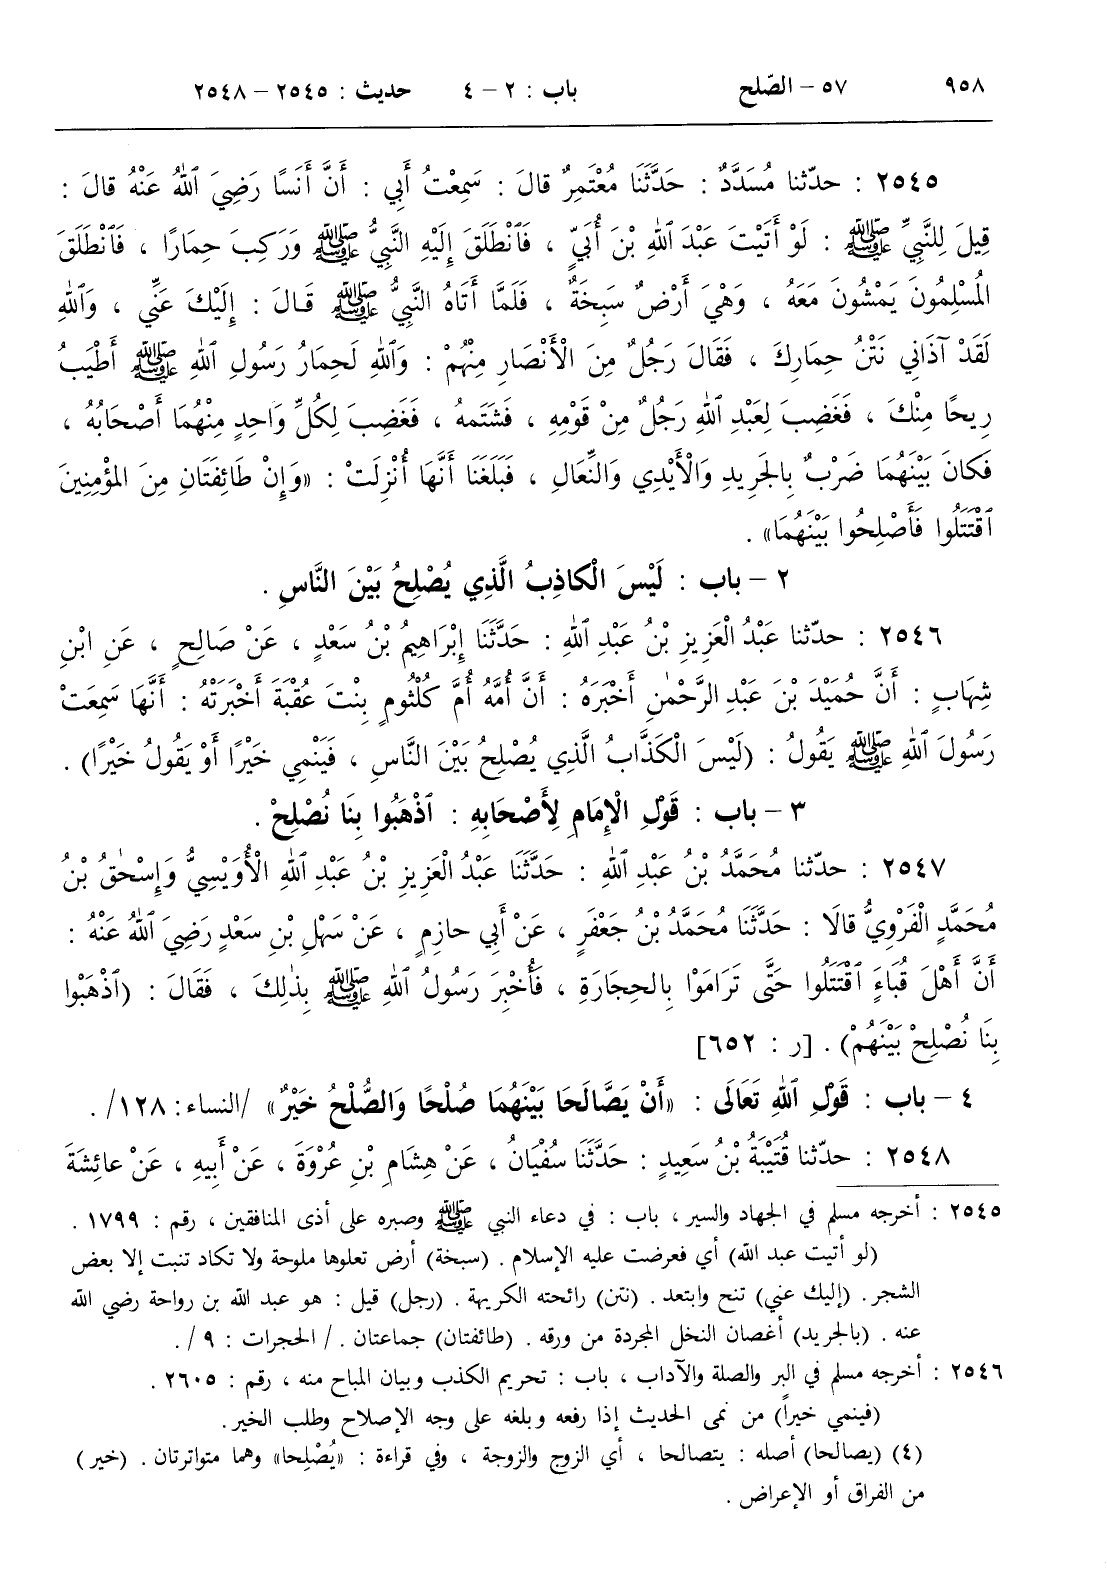 ٩٥٨ ٥٧ – الصّلح باب : ٢ – ٤ حديث : ٢٥٤٥ – ٢٥٤٨
٢٥٤٥ : حدّثنا مُسَدَّدٌ : حَدَّثَنَا مُعْتَمِرٌ قالَ : سَمِعْتُ أَبِي : أَنَّ أَنَسًا رَضِيَ ٱللهُ عَنْهُ قالَ :
قِيلَ لِلنَّبِيِّ ﷺ : لَوْ أَتَيْتَ عَبْدَ ٱللهِ بْنَ أُبَيٍّ ، فَٱنْطَلَقَ إِلَيْهِ النَّبِيُّ ﷺ وَرَكِبَ حِمَارًا ، فَٱنْطَلَقَ
الْمُسْلِمُونَ يَمْشُونَ مَعَهُ ، وَهْيَ أَرْضٌ سَبِخَةٌ ، فَلَمَّا أَتَاهُ النَّبِيُّ ﷺ قَالَ : إِلَيْكَ عَنِّي ، وَٱللهِ
لَقَدْ آذَانِي نَتْنُ حِمَارِكَ ، فَقَالَ رَجُلٌ مِنَ الْأَنْصَارِ مِنْهُمْ : وَٱللهِ لَحِمَارُ رَسُولِ ٱللهِ ﷺ أَطْيَبُ
رِيحًا مِنْكَ ، فَغَضِبَ لِعَبْدِ ٱللهِ رَجُلٌ مِنْ قَوْمِهِ ، فَشَتَمهُ ، فَغَضِبَ لِكُلِّ وَاحِدٍ مِنْهُمَا أَصْحَابُهُ ،
فَكانَ بَيْنَهُمَا ضَرْبٌ بِالجَرِيدِ وَالْأَيْدِي وَالنِّعَالِ ، فَبَلَغَنَا أَنَّهَا أُنْزِلَتْ : «وَإِنْ طَائِفَتَانِ مِنَ المُؤْمِنِينَ
ٱقْتَتَلُوا فَأَصْلِحُوا بَيْنَهُمَا» .
٢ – باب : لَيْسَ الْكَاذِبُ الَّذِي يُصْلِحُ بَيْنَ النَّاسِ .
٢٥٤٦ : حدّثنا عَبْدُ الْعَزِيزِ بْنُ عَبْدِ ٱللهِ : حَدَّثَنَا إِبْرَاهِيمُ بْنُ سَعْدٍ ، عَنْ صَالِحٍ ، عَنِ ابْنِ
شِهَابٍ : أَنَّ حُمَيْدَ بْنَ عَبْدِ الرَّحْمٰنِ أَخْبَرَهُ : أَنَّ أُمَّهُ أُمَّ كُلْثُومٍ بِنْتَ عُقْبَةَ أَخْبَرَتْهُ : أَنَّهَا سَمِعَتْ
رَسُولَ ٱللهِ ﷺ يَقُولُ : (لَيْسَ الْكَذَّابُ الَّذِي يُصْلِحُ بَيْنَ النَّاسِ ، فَيَنْمِي خَيْرًا أَوْ يَقُولُ خَيْرًا) .
٣ – باب : قَوْلِ الْإِمَامِ لِأَصْحَابِهِ : ٱذْهَبُوا بِنَا نُصْلِحْ .
٢٥٤٧ : حدّثنا مُحَمَّدُ بْنُ عَبْدِ ٱللهِ : حَدَّثَنَا عَبْدُ الْعَزِيزِ بْنُ عَبْدِ ٱللهِ الْأُوَيْسِيُّ وَإِسْحٰقُ بْنُ
مُحَمَّدٍ الْفَرْوِيُّ قالَا : حَدَّثَنَا مُحَمَّدُ بْنُ جَعْفَرٍ ، عَنْ أَبِي حازِمٍ ، عَنْ سَهْلِ بْنِ سَعْدٍ رَضِيَ ٱللهُ عَنْهُ :
أَنَّ أَهْلَ قُبَاءٍ ٱقْتَتَلُوا حَتَّى تَرَامَوْا بِالحِجَارَةِ ، فَأُخْبِرَ رَسُولُ ٱللهِ ﷺ بِذٰلِكَ ، فَقَالَ : (ٱذْهَبُوا
بِنَا نُصْلِحْ بَيْنَهُمْ) . [ر : ٦٥٢]
٤ – باب : قَوْلِ ٱللهِ تَعَالَى : «أَنْ يَصَّالَحَا بَيْنَهُمَا صُلْحًا وَالصُّلْحُ خَيْرٌ» /النساء: ١٢٨/ .
٢٥٤٨ : حدّثنا قُتَيْبَةُ بْنُ سَعِيدٍ : حَدَّثَنَا سُفْيَانُ ، عَنْ هِشَامِ بْنِ عُرْوَةَ ، عَنْ أَبِيهِ ، عَنْ عائِشَةَ
٢٥٤٥ : أخرجه مسلم في الجهاد والسير ، باب : في دعاء النبي ﷺ وصبره على أذى المنافقين ، رقم : ١٧٩٩ .
(لو أتيت عبد الله) أي فعرضت عليه الإسلام . (سبخة) أرض تعلوها ملوحة ولا تكاد تنبت إلا بعض
الشجر. (إليك عني) تنح وابتعد . (نتن) رائحته الكريهة . (رجل) قيل : هو عبد الله بن رواحة رضي الله
عنه . (بالجريد) أغصان النخل المجردة من ورقه . (طائفتان) جماعتان . / الحجرات : ٩ /.
٢٥٤٦ : أخرجه مسلم في البر والصلة والآداب ، باب : تحريم الكذب وبيان المباح منه ، رقم : ٢٦٠٥ .
(فينمي خيراً) من نمى الحديث إذا رفعه وبلغه على وجه الإصلاح وطلب الخير .
(٤) (يصالحا) أصله : يتصالحا ، أي الزوج والزوجة ، وفي قراءة : «يُصْلِحا» وهما متواترتان . (خير )
من الفراق أو الإعراض .